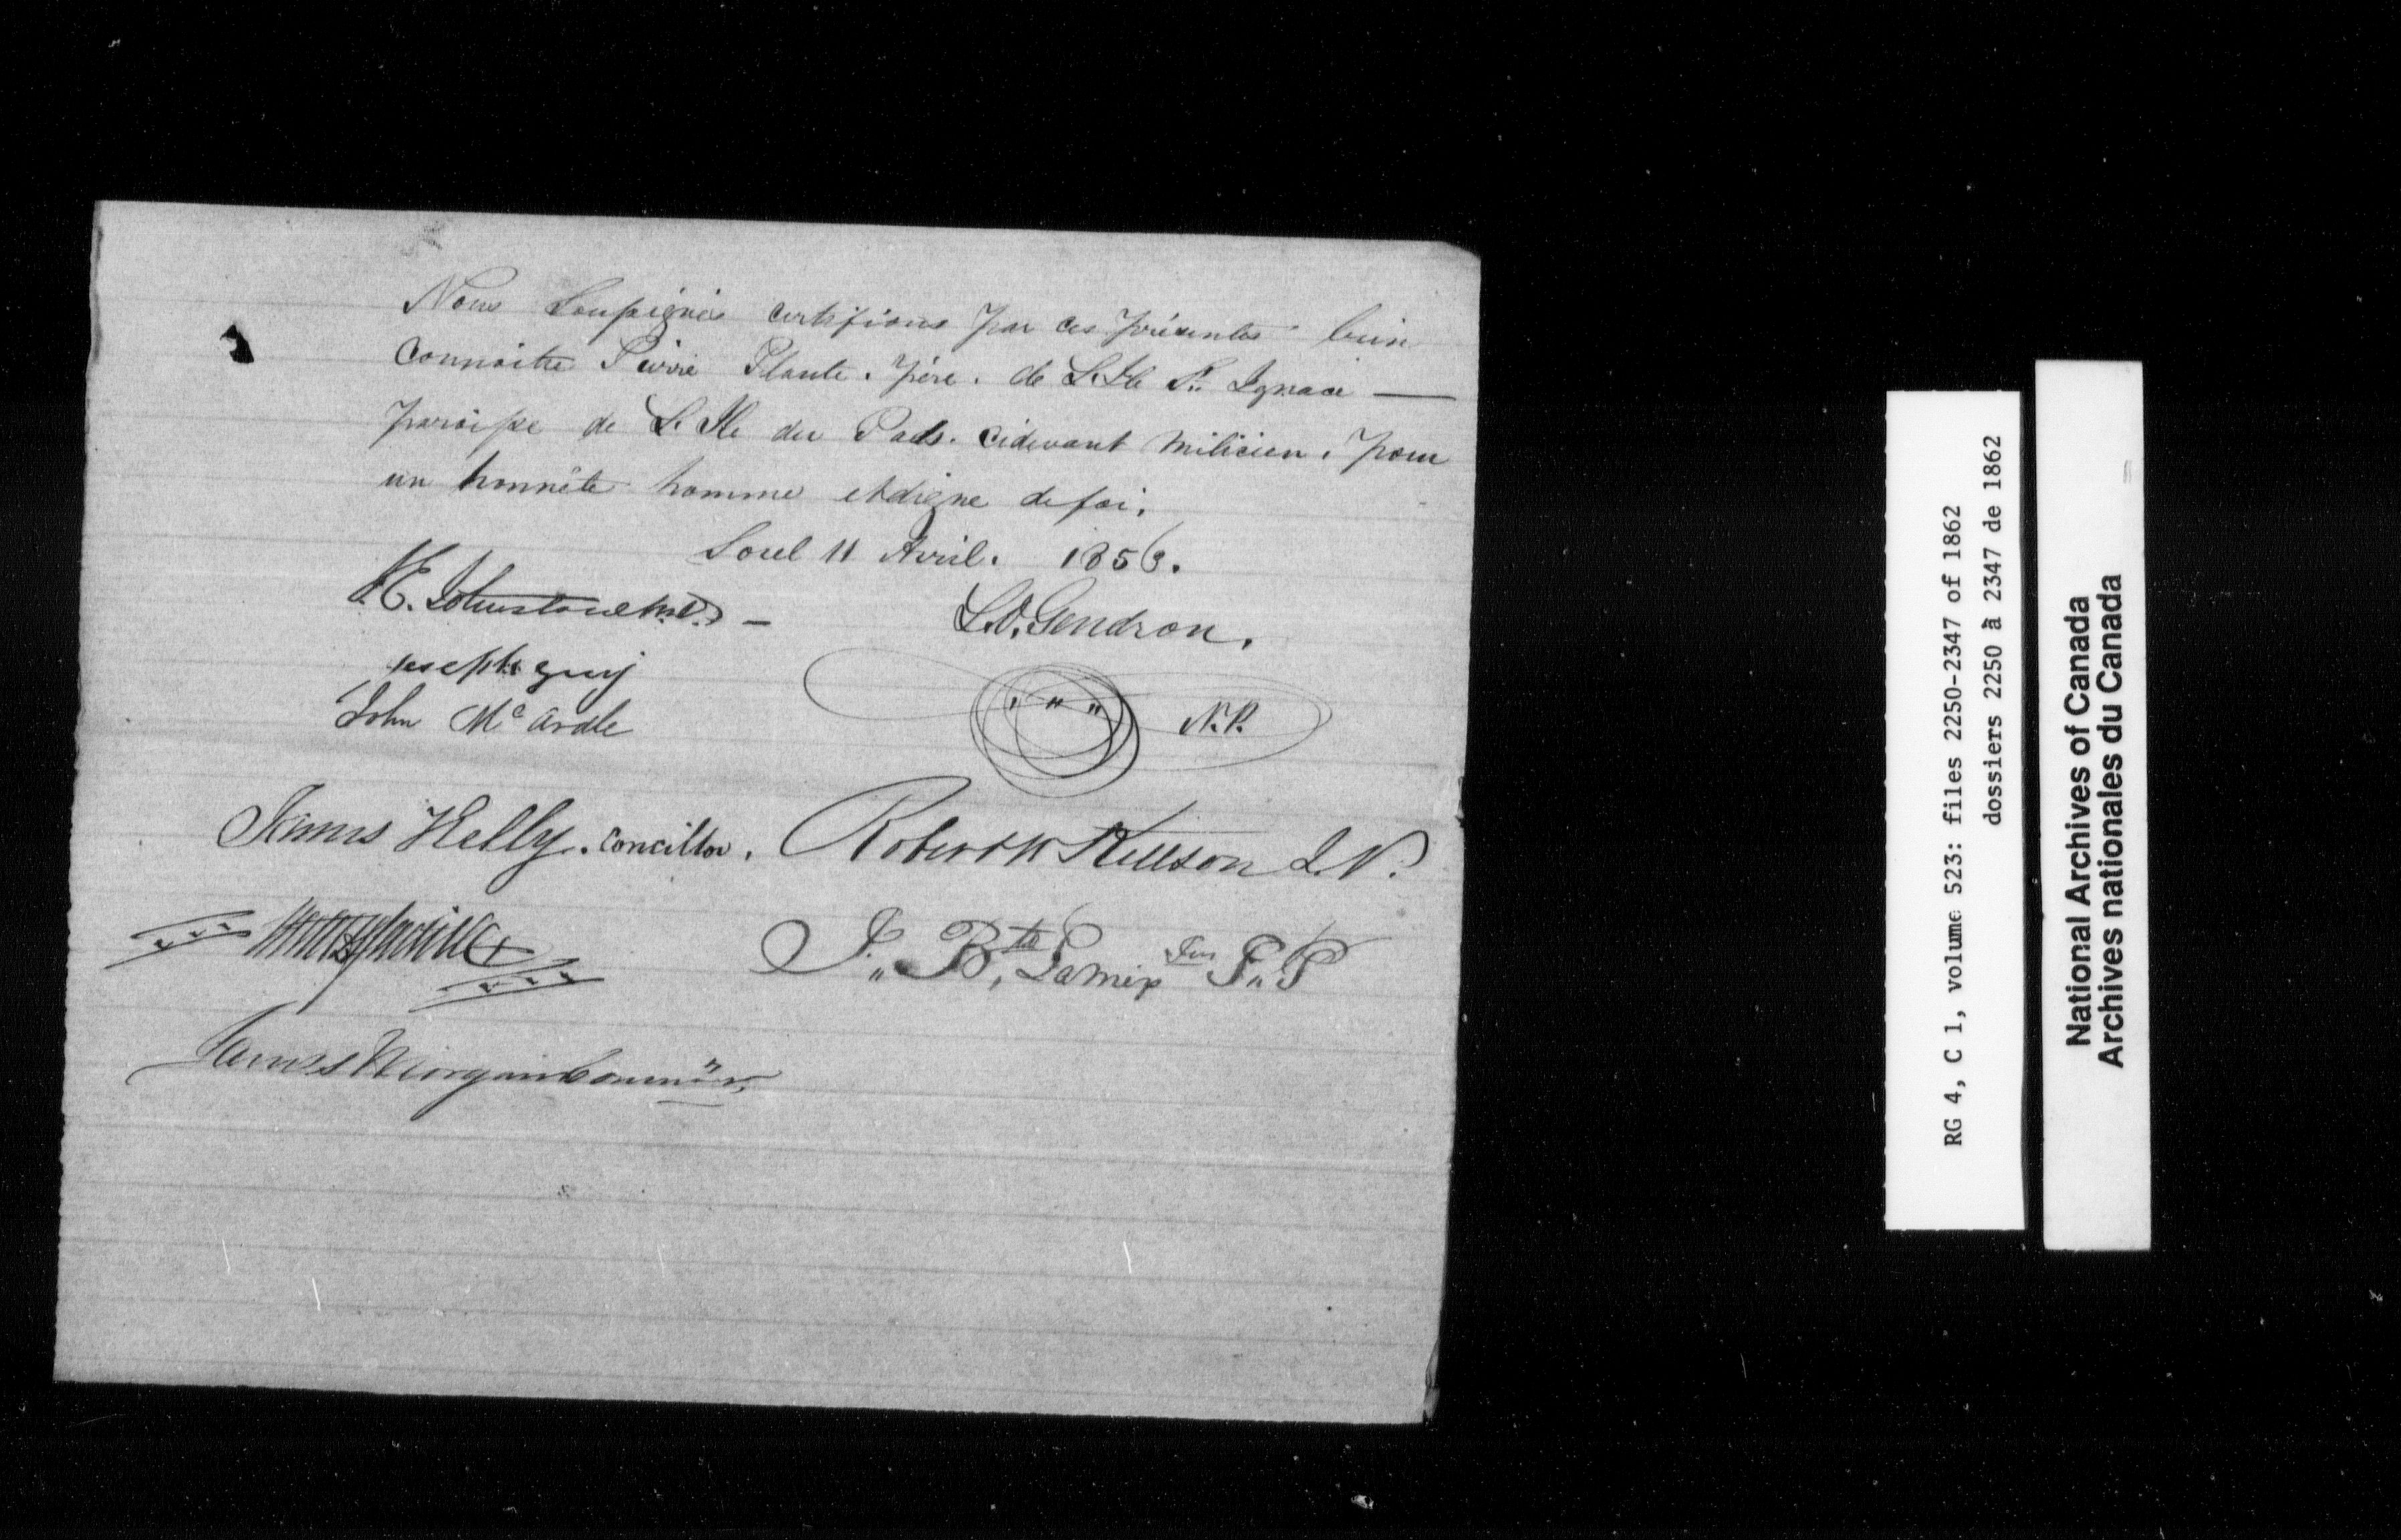 Nous Soussignés certifions par ces présentes bien
connoitre Pierre Plante. père. de L.Ile St. Ignace —
paroisse de L. Ile du Pads. cidevant milicien. pour
un honnête homme et digne de foi.
Sorel 11 Avril. 1856.
Johnstone M.D. —
L.O. Gendron.
Joseph guy
John Mc Ardle
N.P.
James Kelly. Concillor.
Robert H Kittson
J. Bte
James Morgan
RG 4, C 1, volume 523: files 2250-2347 of 1862
dossiers 2250 à 2347 de 1862
National Archives of Canada
Archives nationales du Canada